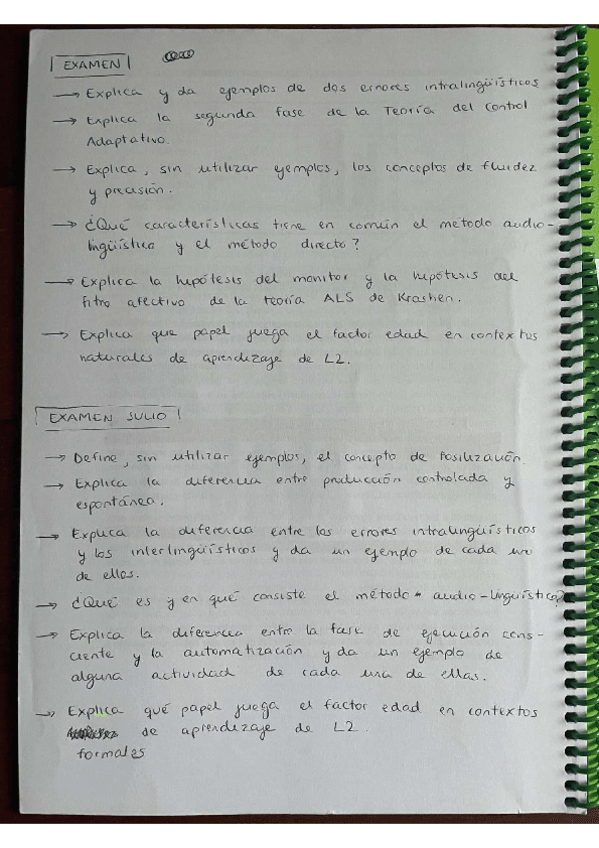 EXAMEN
→ Explica y da ejemplos de dos errores intralingüísticos
→ Explica la segunda fase de la Teoría del Control
Adaptativo.
→ Explica, sin utilizar ejemplos, los conceptos de fluidez
y precisión.
→ ¿Qué características tiene en común el método audio-
lingüístico y el método directo?
→ Explica la hipótesis del monitor y la hipótesis del
filtro afectivo de la teoría ALS de Krashen.
→ Explica que papel juega el factor edad en contextos
naturales de aprendizaje de L2.
EXAMEN JULIO
→ Define, sin utilizar ejemplos, el concepto de fosilización.
→ Explica la diferencia entre producción controlada y
espontánea.
→ Explica la diferencia entre los errores intralingüísticos
y los interlingüísticos y da un ejemplo de cada uno
de ellos.
→ ¿Qué es y en qué consiste el método audio-lingüístico?
→ Explica la diferencia entre la fase de ejecución cons-
ciente y la automatización y da un ejemplo de
alguna actividad de cada una de ellas.
→ Explica qué papel juega el factor edad en contextos
de aprendizaje de L2.
formales